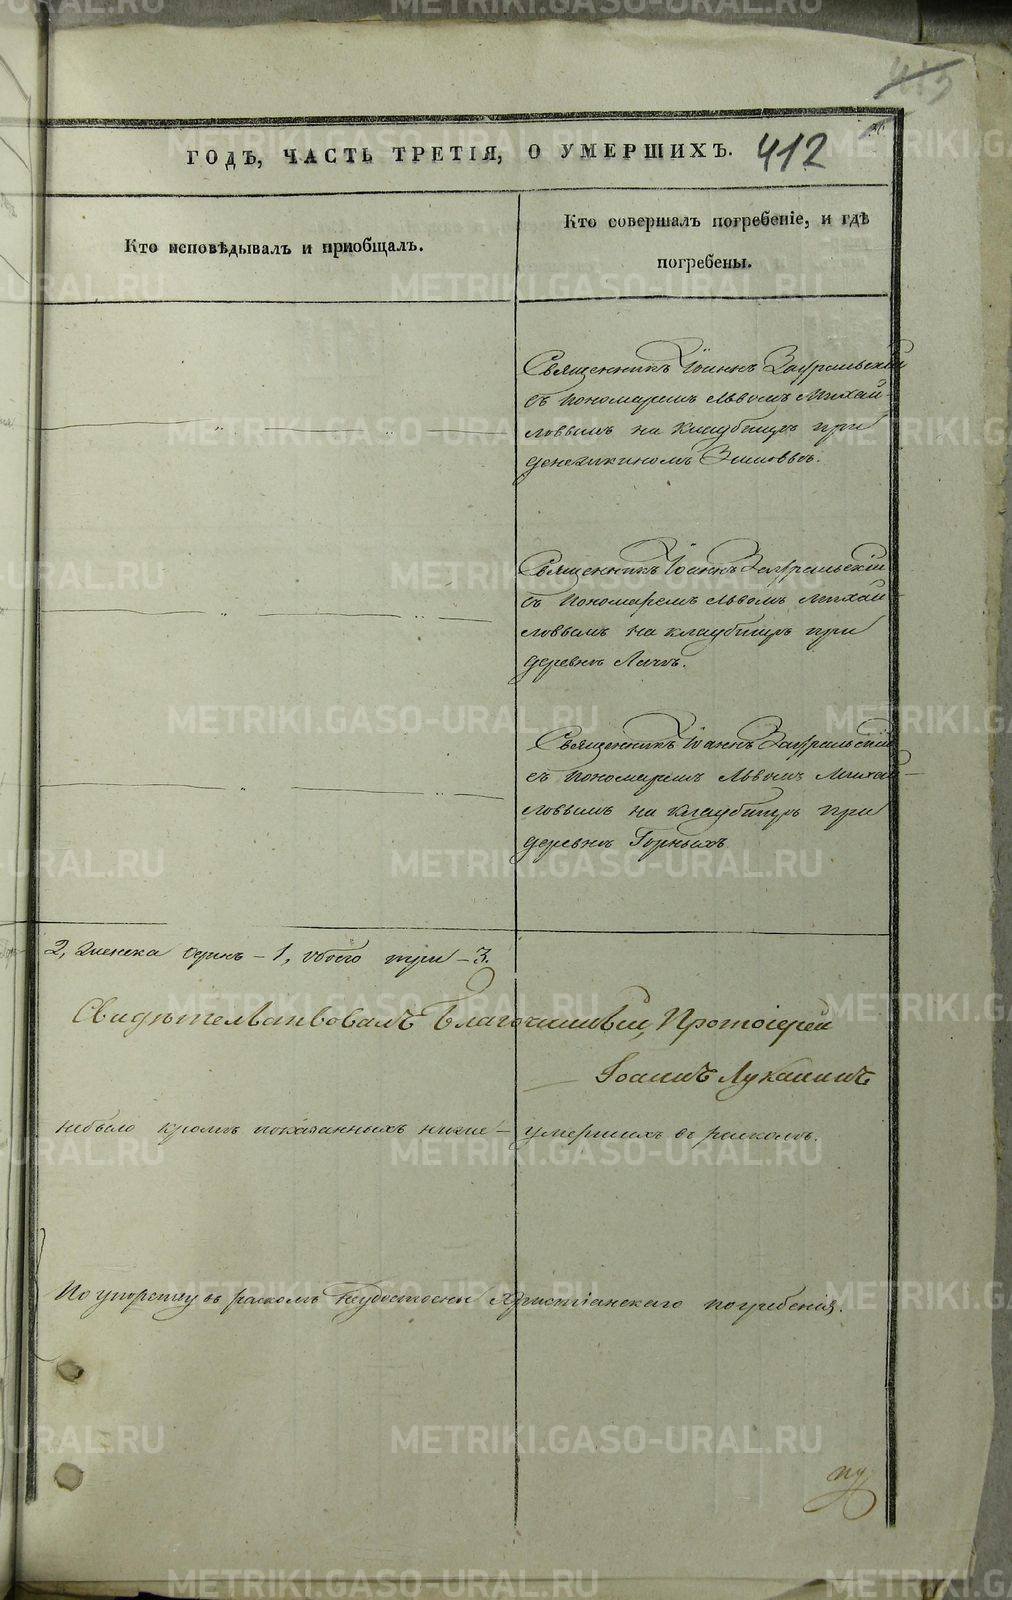 415
ГОДЪ, ЧАСТЬ ТРЕТІЯ, О УМЕРШИХЪ. 412
Кто исповѣдывалъ и пріобщалъ.
Кто совершалъ погребеніе, и гдѣ
погребены.
Священникъ Іоаннъ Зауральскій
съ пономаремъ Львомъ Михай-
ловымъ на кладбищѣ при
Денежкиномъ Зимовьѣ.
Священникъ Іоаннъ Зауральскій
съ пономаремъ Львомъ Михай-
ловымъ на кладбищѣ при
деревнѣ Лачѣ.
Священникъ Іоаннъ Зауральскій
съ пономаремъ Львомъ Михай-
ловымъ на кладбищѣ при
деревнѣ Горныхъ
2, женска одинъ - 1, обоего три - 3.
Свидѣтельствовалъ Благочинный, Протоіерей
Іоаннъ Луканинъ
небыло кромѣ показанныхъ ниже умершихъ въ расколѣ.
По упорству въ расколѣ неудостоены Христіанскаго погребенія.
METRIKI.GASO-URAL.RU